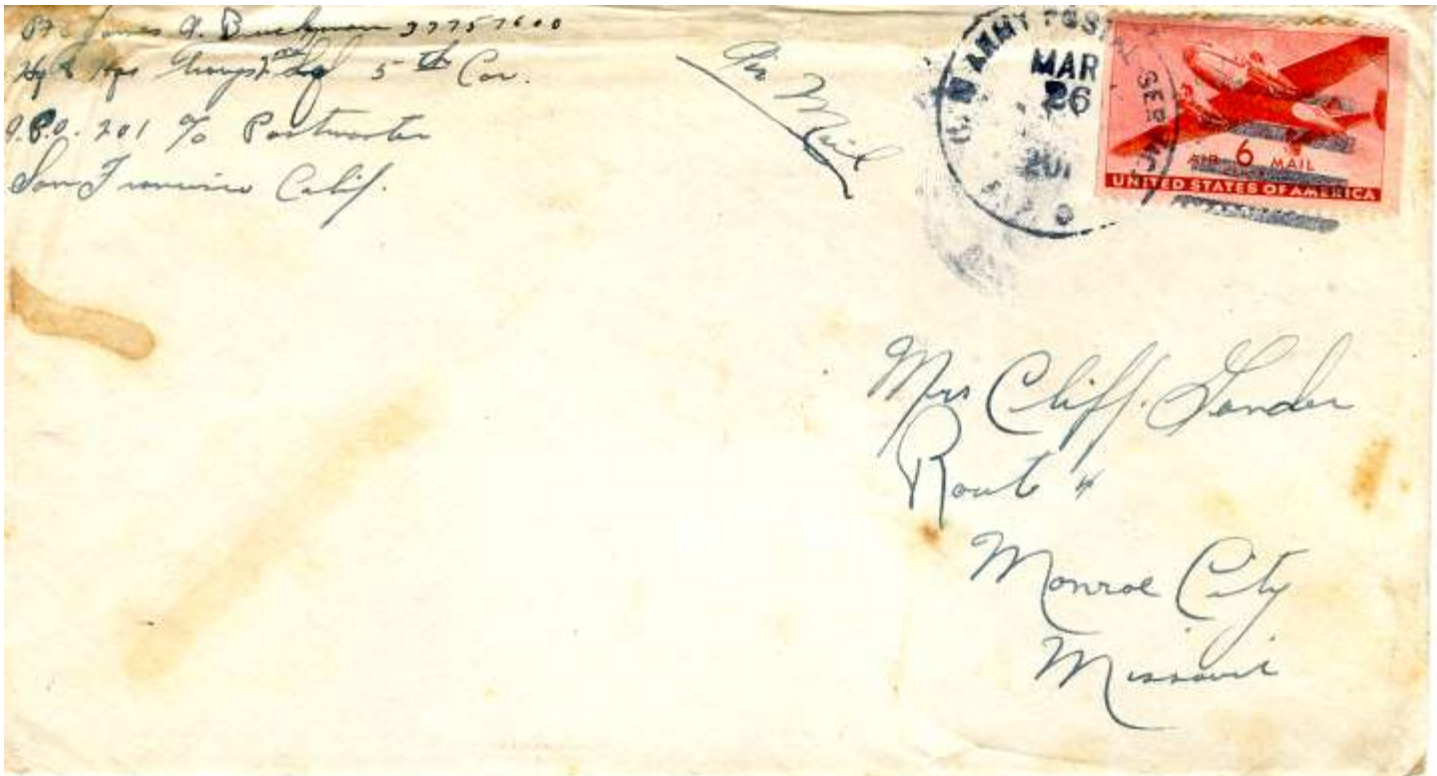 Pfc James A. Buckman 37757600
Hq & Hqs Troops 2nd Sq 5th Cav.
A.P.O. 201 c/o Postmaster
San Francisco Calif.
Air Mail
U.S. ARMY POSTAL SERVICE
MAR
26
201
A.P.O.
AIR 6 MAIL
UNITED STATES OF AMERICA
Mrs Cliff. Sander
Route 4
Monroe City
Missouri